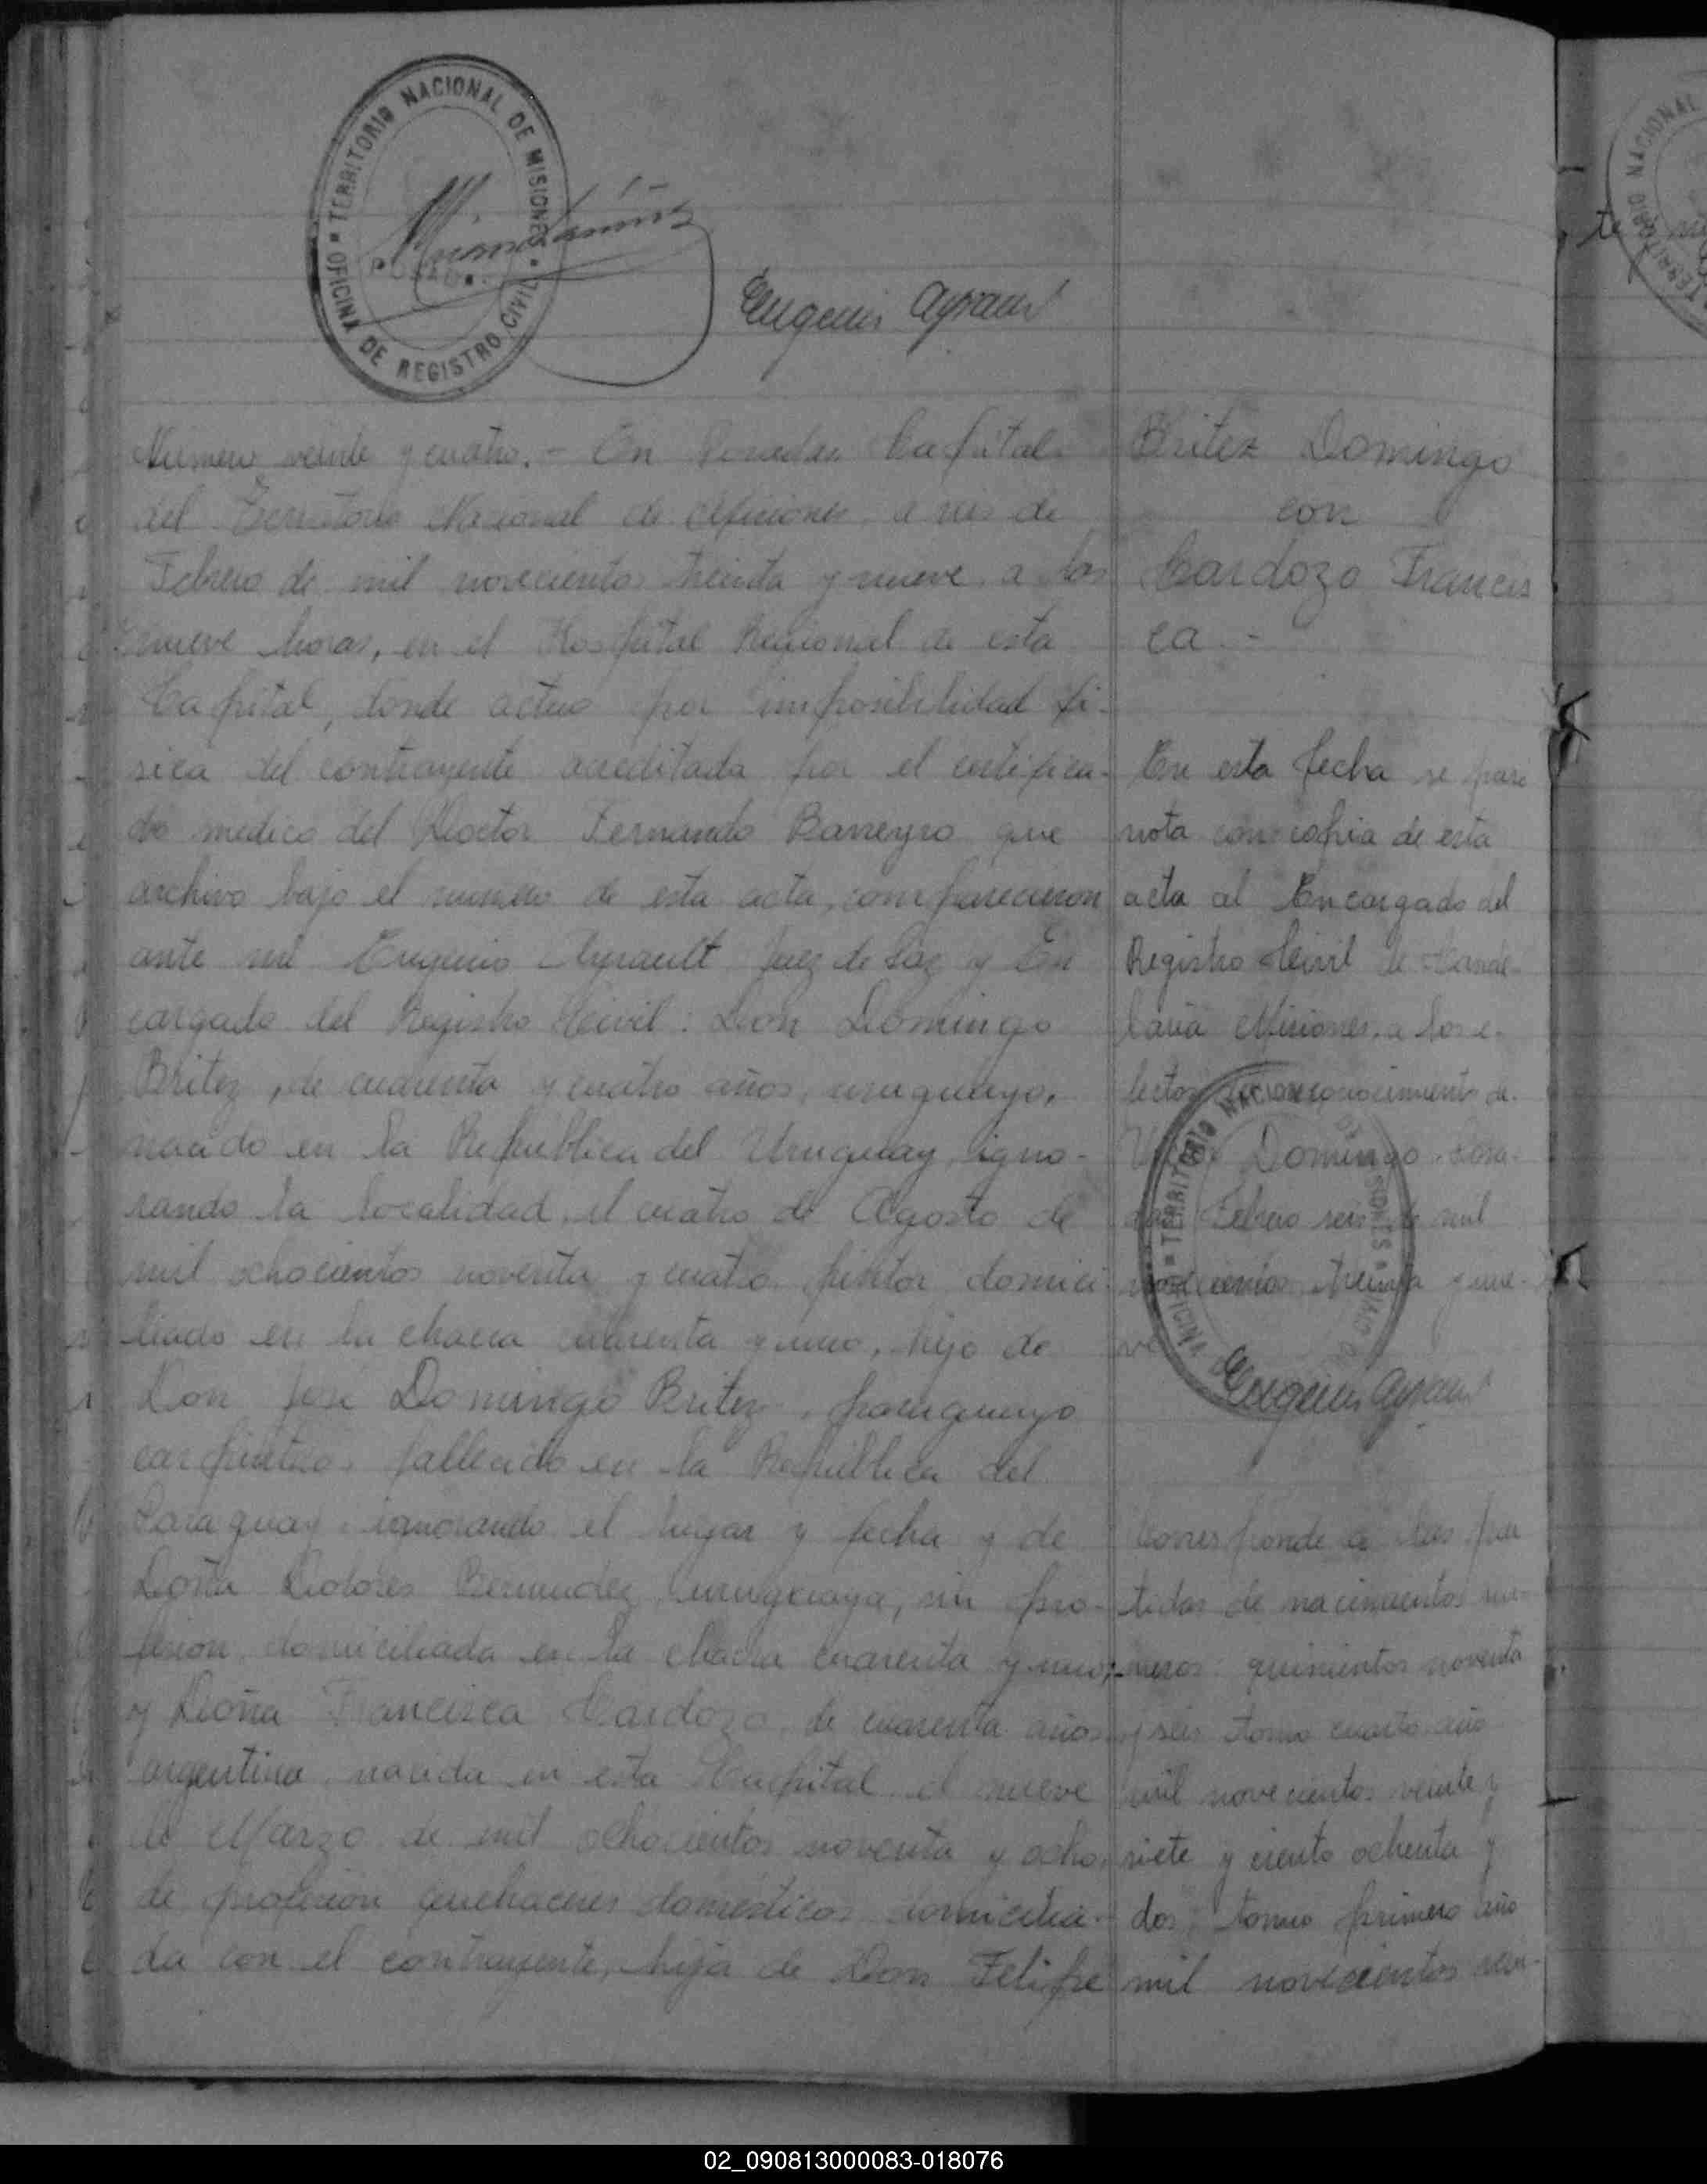 TERRITORIO NACIONAL DE MISIONES
OFICINA DE REGISTRO CIVIL
Eugenio Ayrault
Numero veinte y cuatro. - En Posadas Capital
del Territorio Nacional de Misiones, a seis de
Febrero de mil novecientos treinta y nueve, a las
nueve horas, en el Hospital Regional de esta
Capital, donde actuo por imposibilidad fi-
sica del contrayente acreditada por el certifica-
do medico del Doctor Fernando Barreyro que
archivo bajo el numero de esta acta, comparecieron
ante mi Eugenio Ayrault Juez de Paz y En
cargado del Registro Civil: Don Domingo
Britez, de cuarenta y cuatro años, uruguayo,
nacido en la Republica del Uruguay, igno-
rando la localidad, el cuatro de Agosto de
mil ochocientos noventa y cuatro, pintor domici
liado en la chacra cuarenta y uno, hijo de
Don José Domingo Britez, paraguayo
carpintero, fallecido en la República del
Paraguay ignorando el lugar y fecha y de
Doña Dolores Bermudez, uruguaya, sin pro-
fesion, domiciliada en la chacra cuarenta y uno;
y Doña Francisca Cardozo, de cuarenta años
argentina, nacida en esta Capital el nueve
de Marzo de mil ochocientos noventa y ocho,
de profesion quehaceres domesticos domicilia-
da con el contrayente, hija de Don Felipe
Britez Domingo
con
Cardozo Francis
ca. -
En esta fecha se pasó
nota con copia de esta
acta al Encargado del
Registro Civil de Cande-
laria Misiones, a los e-
fectos reconocimiento de
Domingo. Posa-
das Febrero seis de mil
novecientos treinta y nue-
ve
TERRITORIO NACIONAL DE MISIONES
OFICINA CIVIL
Eugenio Ayrault
Corresponde a las par
tidas de nacimientos nu-
meros: quinientos noventa
y seis tomo cuarto año
mil novecientos veinte y
siete y ciento ochenta y
dos, tomo primero año
mil novecientos vein-
NACIONAL
02_090813000083-018076